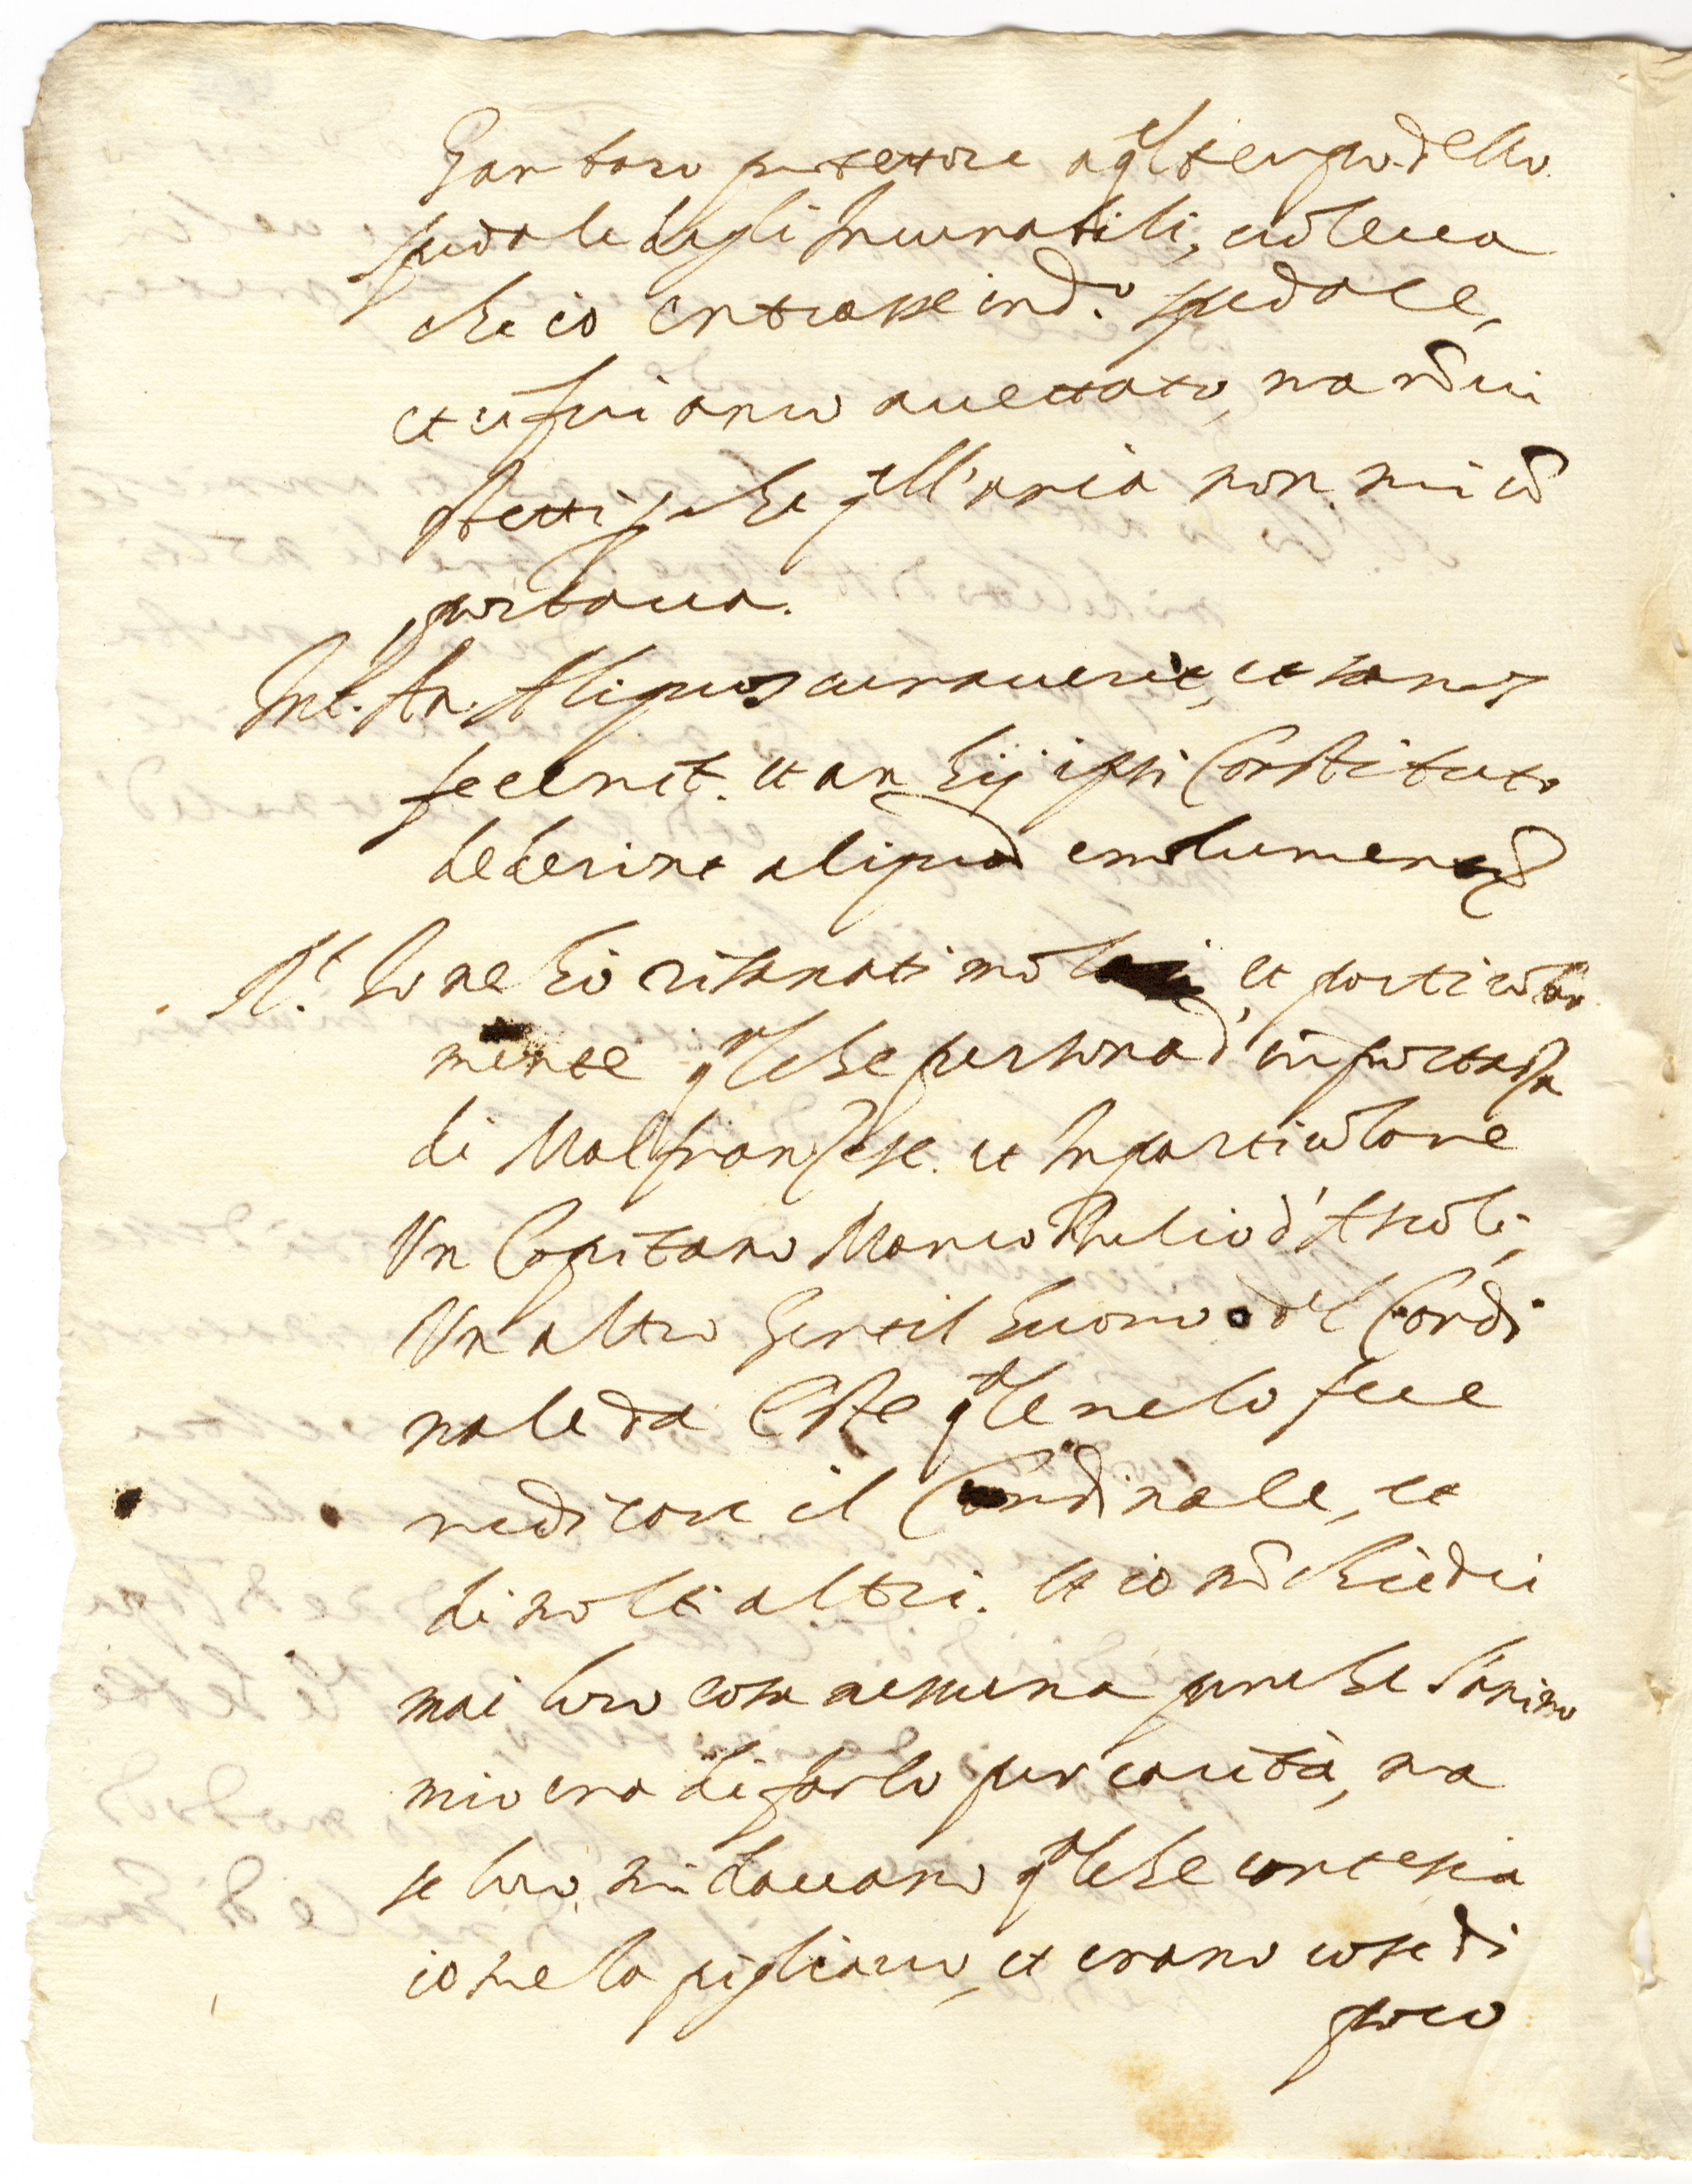 protettore a ql tempo dello
spedale degli Incurabili, uoleua
che io entrasse in d.o spedale,
et ui fui anco accettato, ma nō ui
stetti p che qll'aria non mi cō
portaua.
Int. An. Aliquos curauerit, et sanos
fecerit. et an hij ipsi Constituto
dederint aliquod emolumentū
R.t Io ne ho risanati molti, et particolar
mente qlche persona d'importāza
di Mal franzese. et In particolare
Vn Capitano Marco d'Ascoli,
Vn altro Gentil huomo del Cardi
nale da Este qle me lo fece
medicare il Cardinale, et
di molti altri. et io nō chiedei
mai loro cosa nessuna perche l'animo
mio era di farlo per carità, ma
se loro mi dauano qlche cortesia
io me la pigliauo, et erano cose di
poco